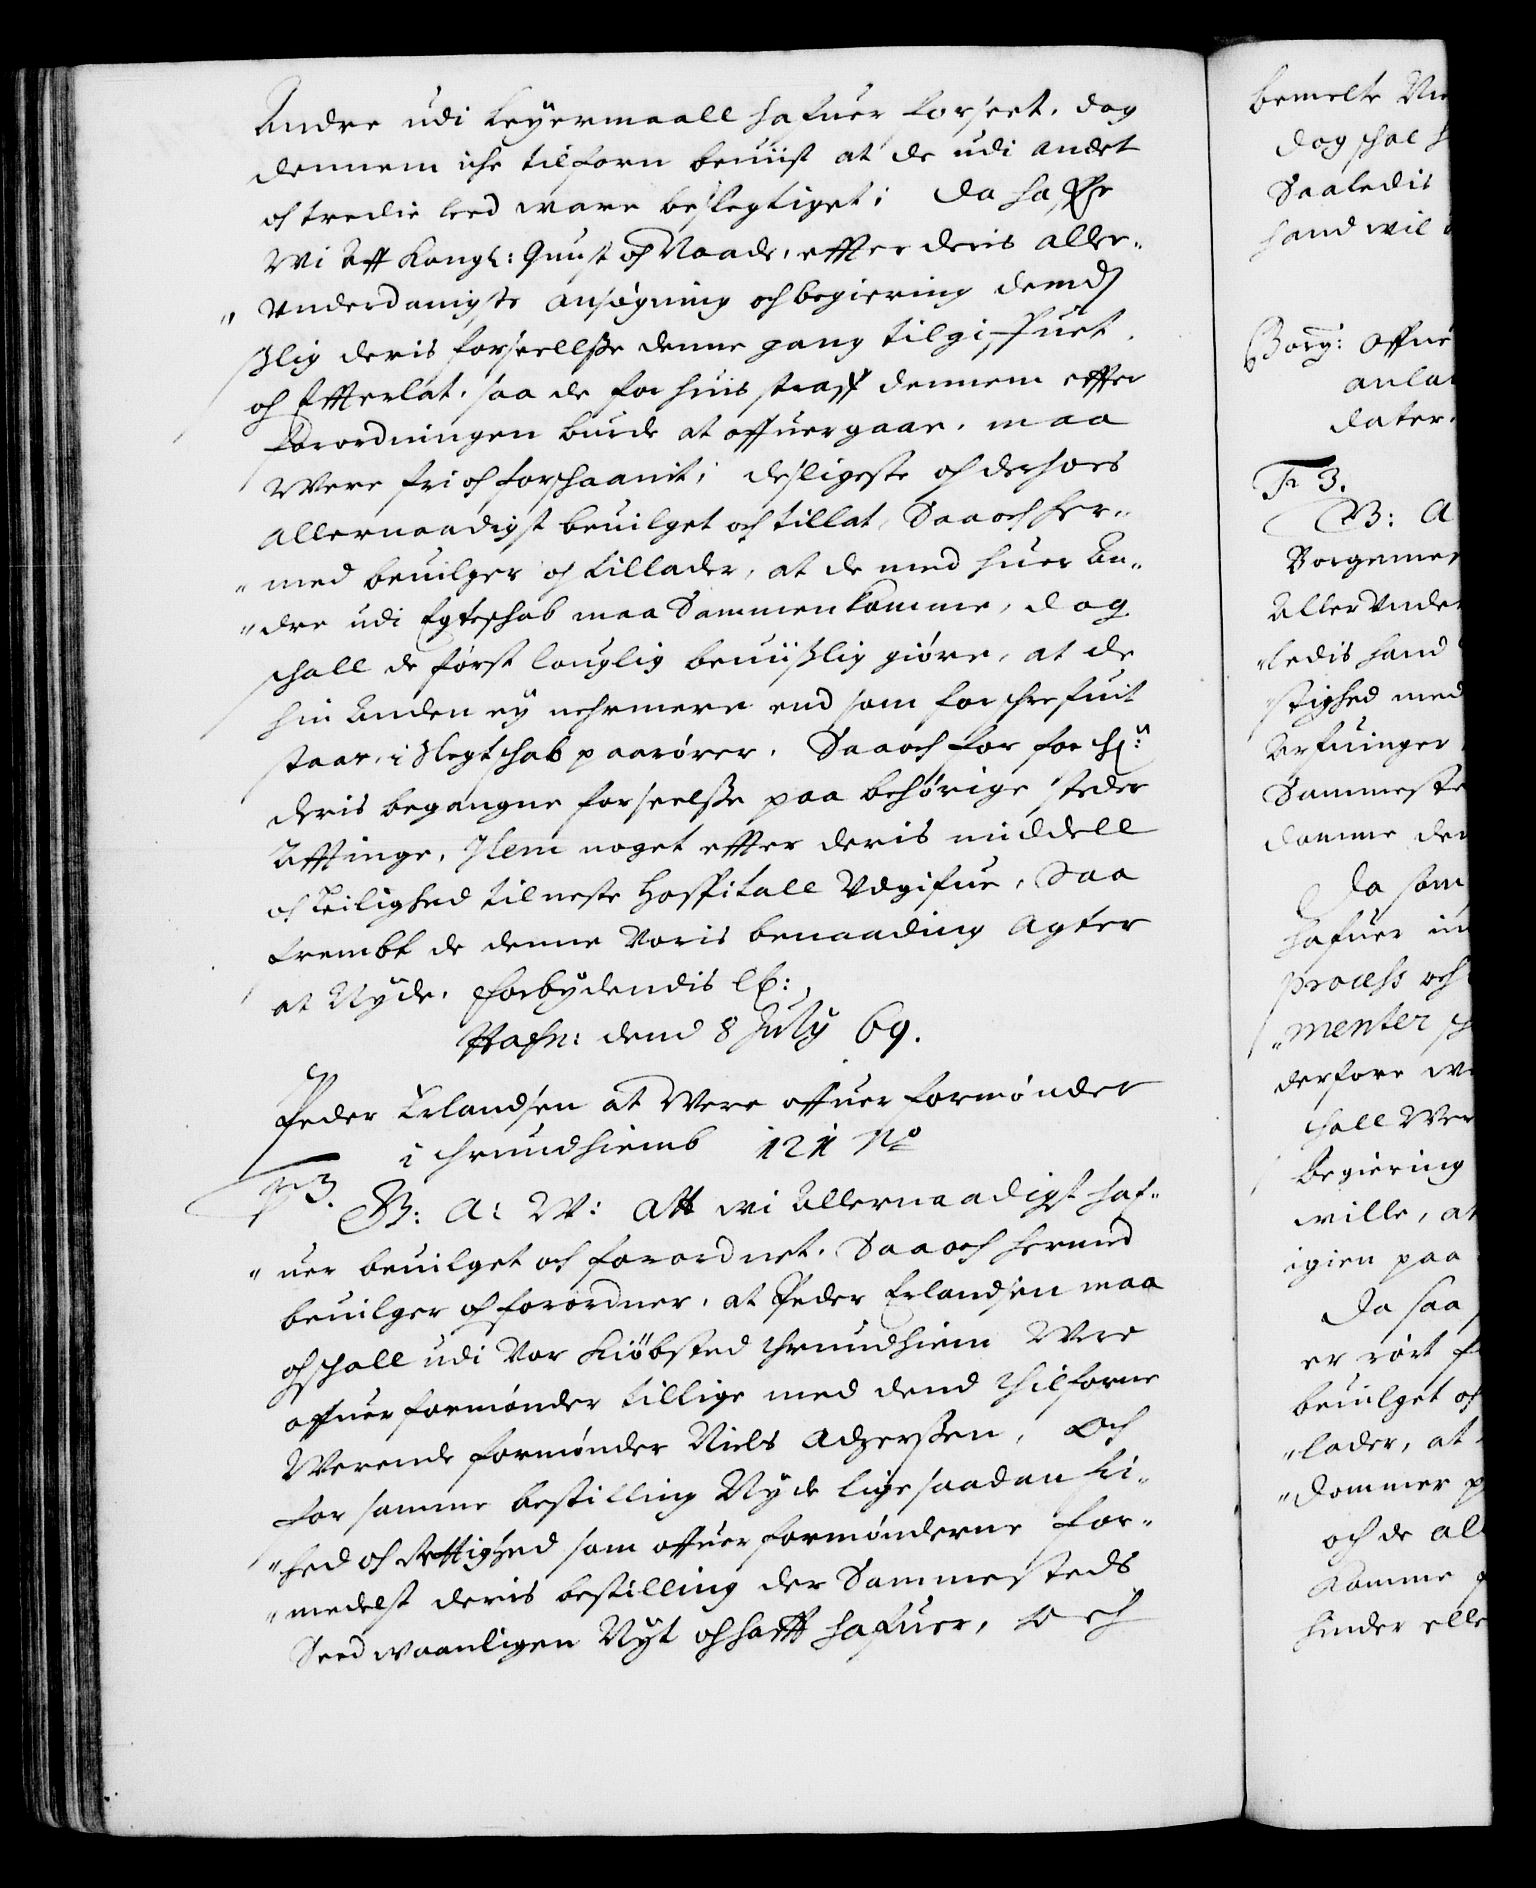 Andre udi Leÿermaall hafuer forseet. dog
dennem iche tilforn beuist at de udi andet
och tredie leed ware beslegtiget; Da haffr
Wi Aff Kongl: Gunst och Naade, effter deris aller„
„Underdanigste ansøgning och begiering demds
slig deris forseellsse denne gang tilgiffuet.
och Efterlat. saa de for huis straff dennem effter
Forordningen burde at offuergaae. maa
Were fri och forschaanit; desligeste och derhoes
allernaadigst beuilget och tillat, Saa och her„
„med beuilger och tillader, at de med huer An„
„dre udi Egteschab maa Sammenkomme, dog
schall de først louglig beuiislig giøre, at de
hin Anden eÿ nehrmere end som forschrefuit
staar, i Slegtschab paarører. Saa och for forschr:
deris begangne forseelsse paa behørige steder
Afftinge, Item noget effter deris middell
och Leilighed til neste Hospitall Udgifue, Saa
frembt de denne Voris benaading Agter
at Nÿde. Forbÿdendis etc:
Hafn: dend 8 Julÿ 69.
Peder Erlandsen at Were offuerformønder
i Thrundhiemb 121 No
F3.
G: A: W: Att wi Allernaadigst haf„
„uer beuilget och forordnet. Saa och hermed
beuilger och forordner, at Peder Erlandsen maa
och schall udi Vor Kiöbsted Thrundhiem Were
offuerformønder tillige med dend Thilforne
Werende formønder Niels Adzerssen, Och
for samme bestilling Nÿde lige saadan fri„
„hed och Rettighed som offuerformønderne for„
„medelst deris bestilling der Sammesteds
Seedwaanligen Nÿt och hafft hafuer, och
bemelte
dog schal
Saaledis
hand wil
Borg: Offue
anla
dater
F3.
G: A
Borgemes
Aller Under
„ledis hand
stighed med
Arfuinger
Sammeste
domme den
Da som
hafuer in
process och
„menter
derfore wi
schall Wer
Begiering
wille, at
igien paa
Da saa
er rört
beuilget och
„lader, at
„dommer
och de al
Komme
hinder elle